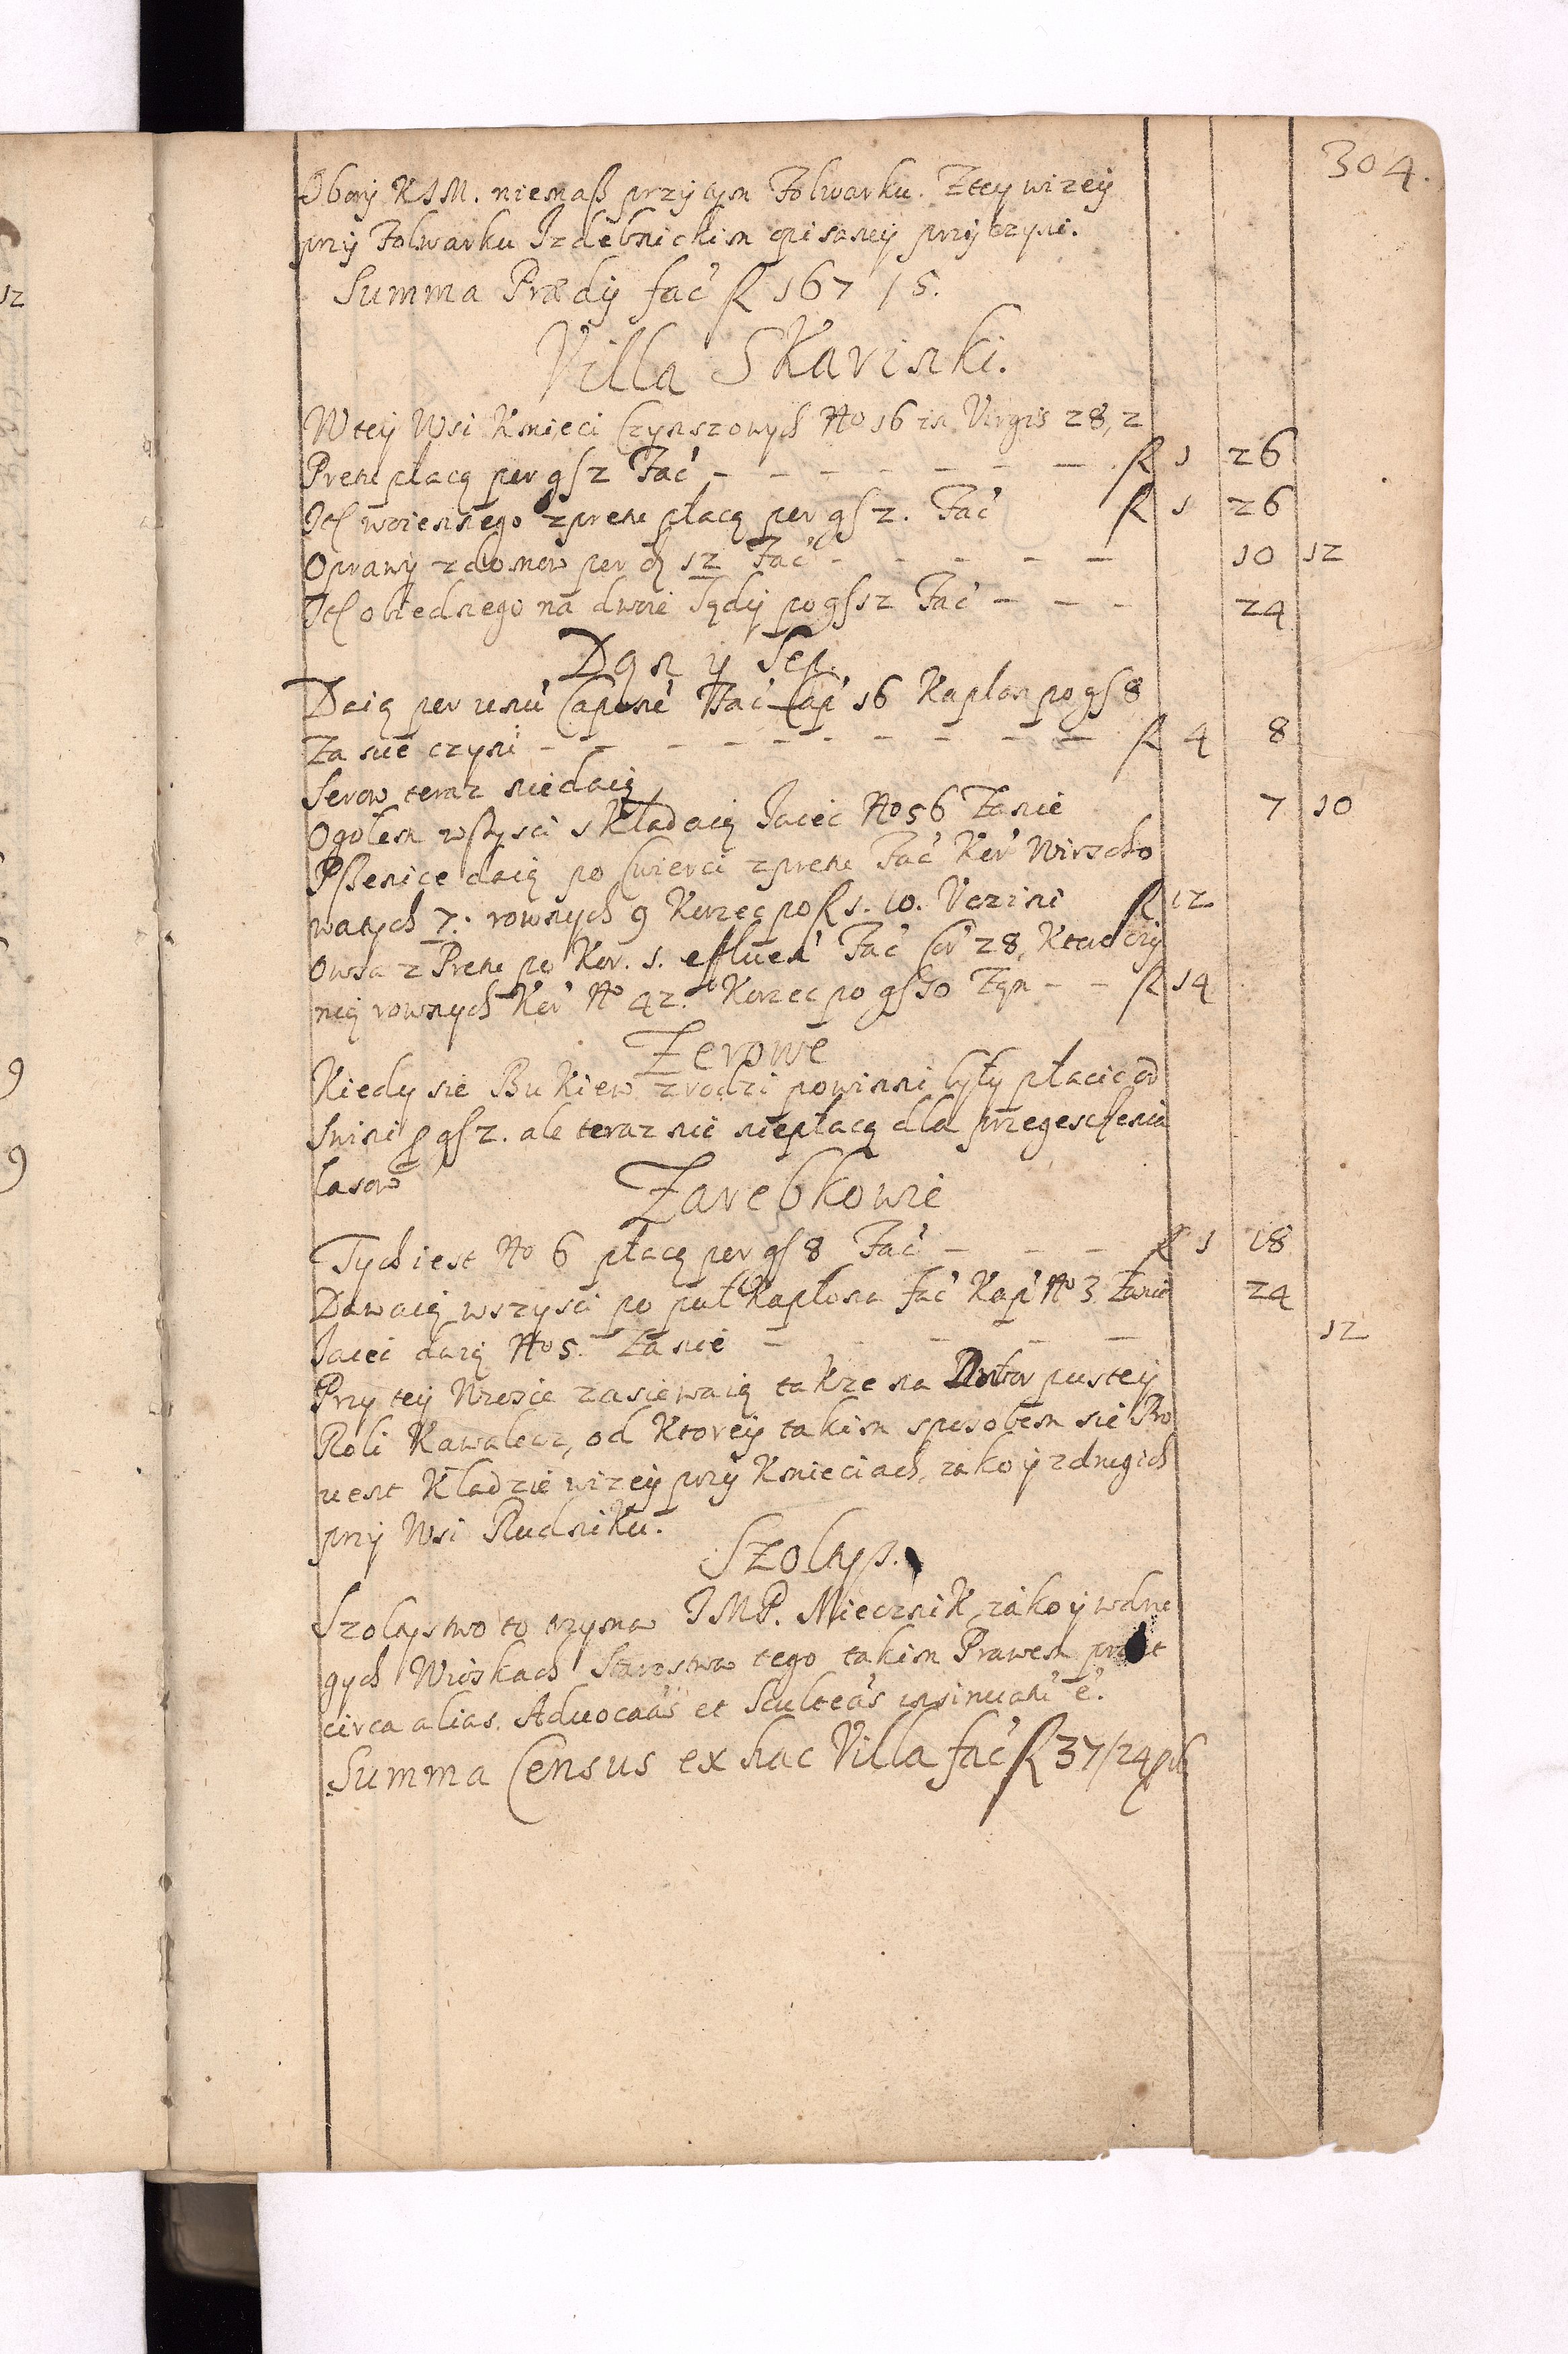 304.
Obory KJM. niemasß przy tym Folwarku. Ztey wizey
przy Folwarku Izdebnickim opisaney przyczyni.
Summa Prædij fac̃ f 167 / 5.
Villa Skavinki.
Wtey Wsi Kmieci Czynszowych No 16 in Virgis 28, z
Prętu płacą per gſ 2 Fac̃ — — — — — — — f 1 26
Itſ wziesnego z prętu płacą per gſ 2. Fac̃ f 1 26
Oprawy zdomow per ₰ 12 Fac̃ — — — — — 10 12
Itſ obiednego na dwoie Sądy po gſ 12 Fac̃ — — — 24
Dan y Sep.
Daią per unũ Caponẽ Fac̃ Cap̃ 16 Kapłon po gſ 8
Za nie czyni — — — — — — — — — — f 4 8
Serow teraz niedaią
Ogolem wsſysci składaią Jaiec No 56 Zanie 7 10
Psſenice daią po Cwierci z prętu Fac̃ Kor̃ Wirzcho
watych 7. rownych 9 Korzec po f 1. 10. Vczini f 12
Owsa z Prętu po Kor. 1. effluen̄ Fac̃ Cor̃ 28, Ktore czy
nią rownych Kor̃ No 42. Korzec po gſ 10 Zan — — f 14
Zerowe
Kiedy sie Bukiew zrodzi powinni były płacic od
Swini ꝑ gſ 2. ale teraz nic niepłacą dla przegeszczenia
lasow
Zarebkowie
Tych iest No 6 płacą per gſ 8 Fac̃ — — — f 1 18
Dawaią wszysci po puł Kapłona Fac̃ Kap̃ No 3 Zanie 24
Jaiec daią No 5. Zanie — — — — — 12
Przy tey Wiosce zasiewaią takze na pustey
Roli Kawalecz, od Ktorey takim sposobem sie Pro
uent Kładzie wizey przy Kmieciach, iako y zdrugich
przy Wsi Rudniku.
Szoltys.
Szoltystwo to trzyma JMP. Miecznik iako y wdru
gych Wioskach Starostwa tego takim Prawem prout
circa alias Aduocaãs et Sculteãs insinuatũ ẽ.
Summa Census ex hac Villa fac̃ f 37/24/16